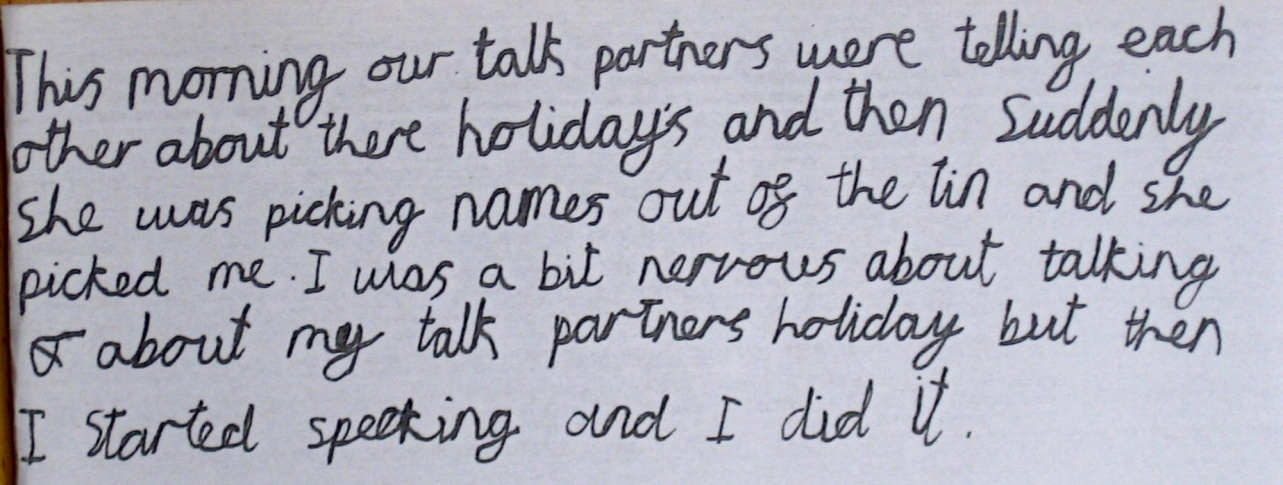 This morning our talk partners were telling each
other about there holiday's and then Suddenly
she was picking names out of the tin and she
picked me. I was a bit nervous about talking
about my talk partners holiday but then
I started speeking and I did it.